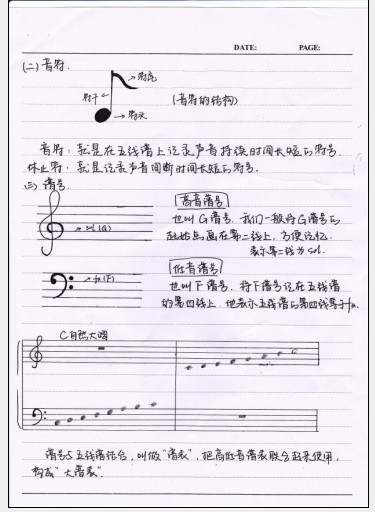 DATE: PAGE:
(二)音符.
符尾
符干
符头
(音符的结构)
音符:就是在五线谱上记录声音持续时间长短的符号.
休止符:就是记录声音间断时间长短的符号.
(三)谱号.
高音谱号
sol(G)
也叫G谱号.我们一般将G谱号的
起始点画在第二线上,方便记忆.
表示第二线为sol.
低音谱号
fa(F)
也叫F谱号,将F谱号记在五线谱
的第四线上.他表示五线谱的第四线等于fa.
C自然大调
谱号与五线谱结合,叫做“谱表”,把高低音谱表联合起来使用,
构成“大谱表”.